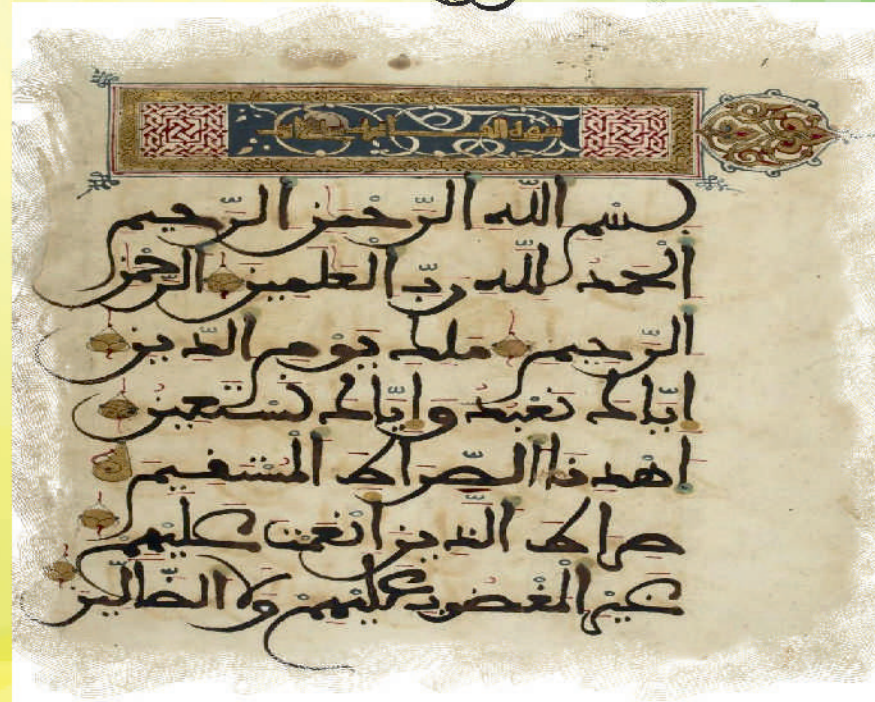 سورة
بسم الله الرّحمن الرّحيم
الحمد لله ربّ العلمين الرّحمن
الرّحيم ملك يوم الدّين
إيّاك نعبد وإيّاك نستعين
اهدنا الصّراط المستقيم
صراط الّذين أنعمت عليهم
غير المغضوب عليهم ولا الضّالّين